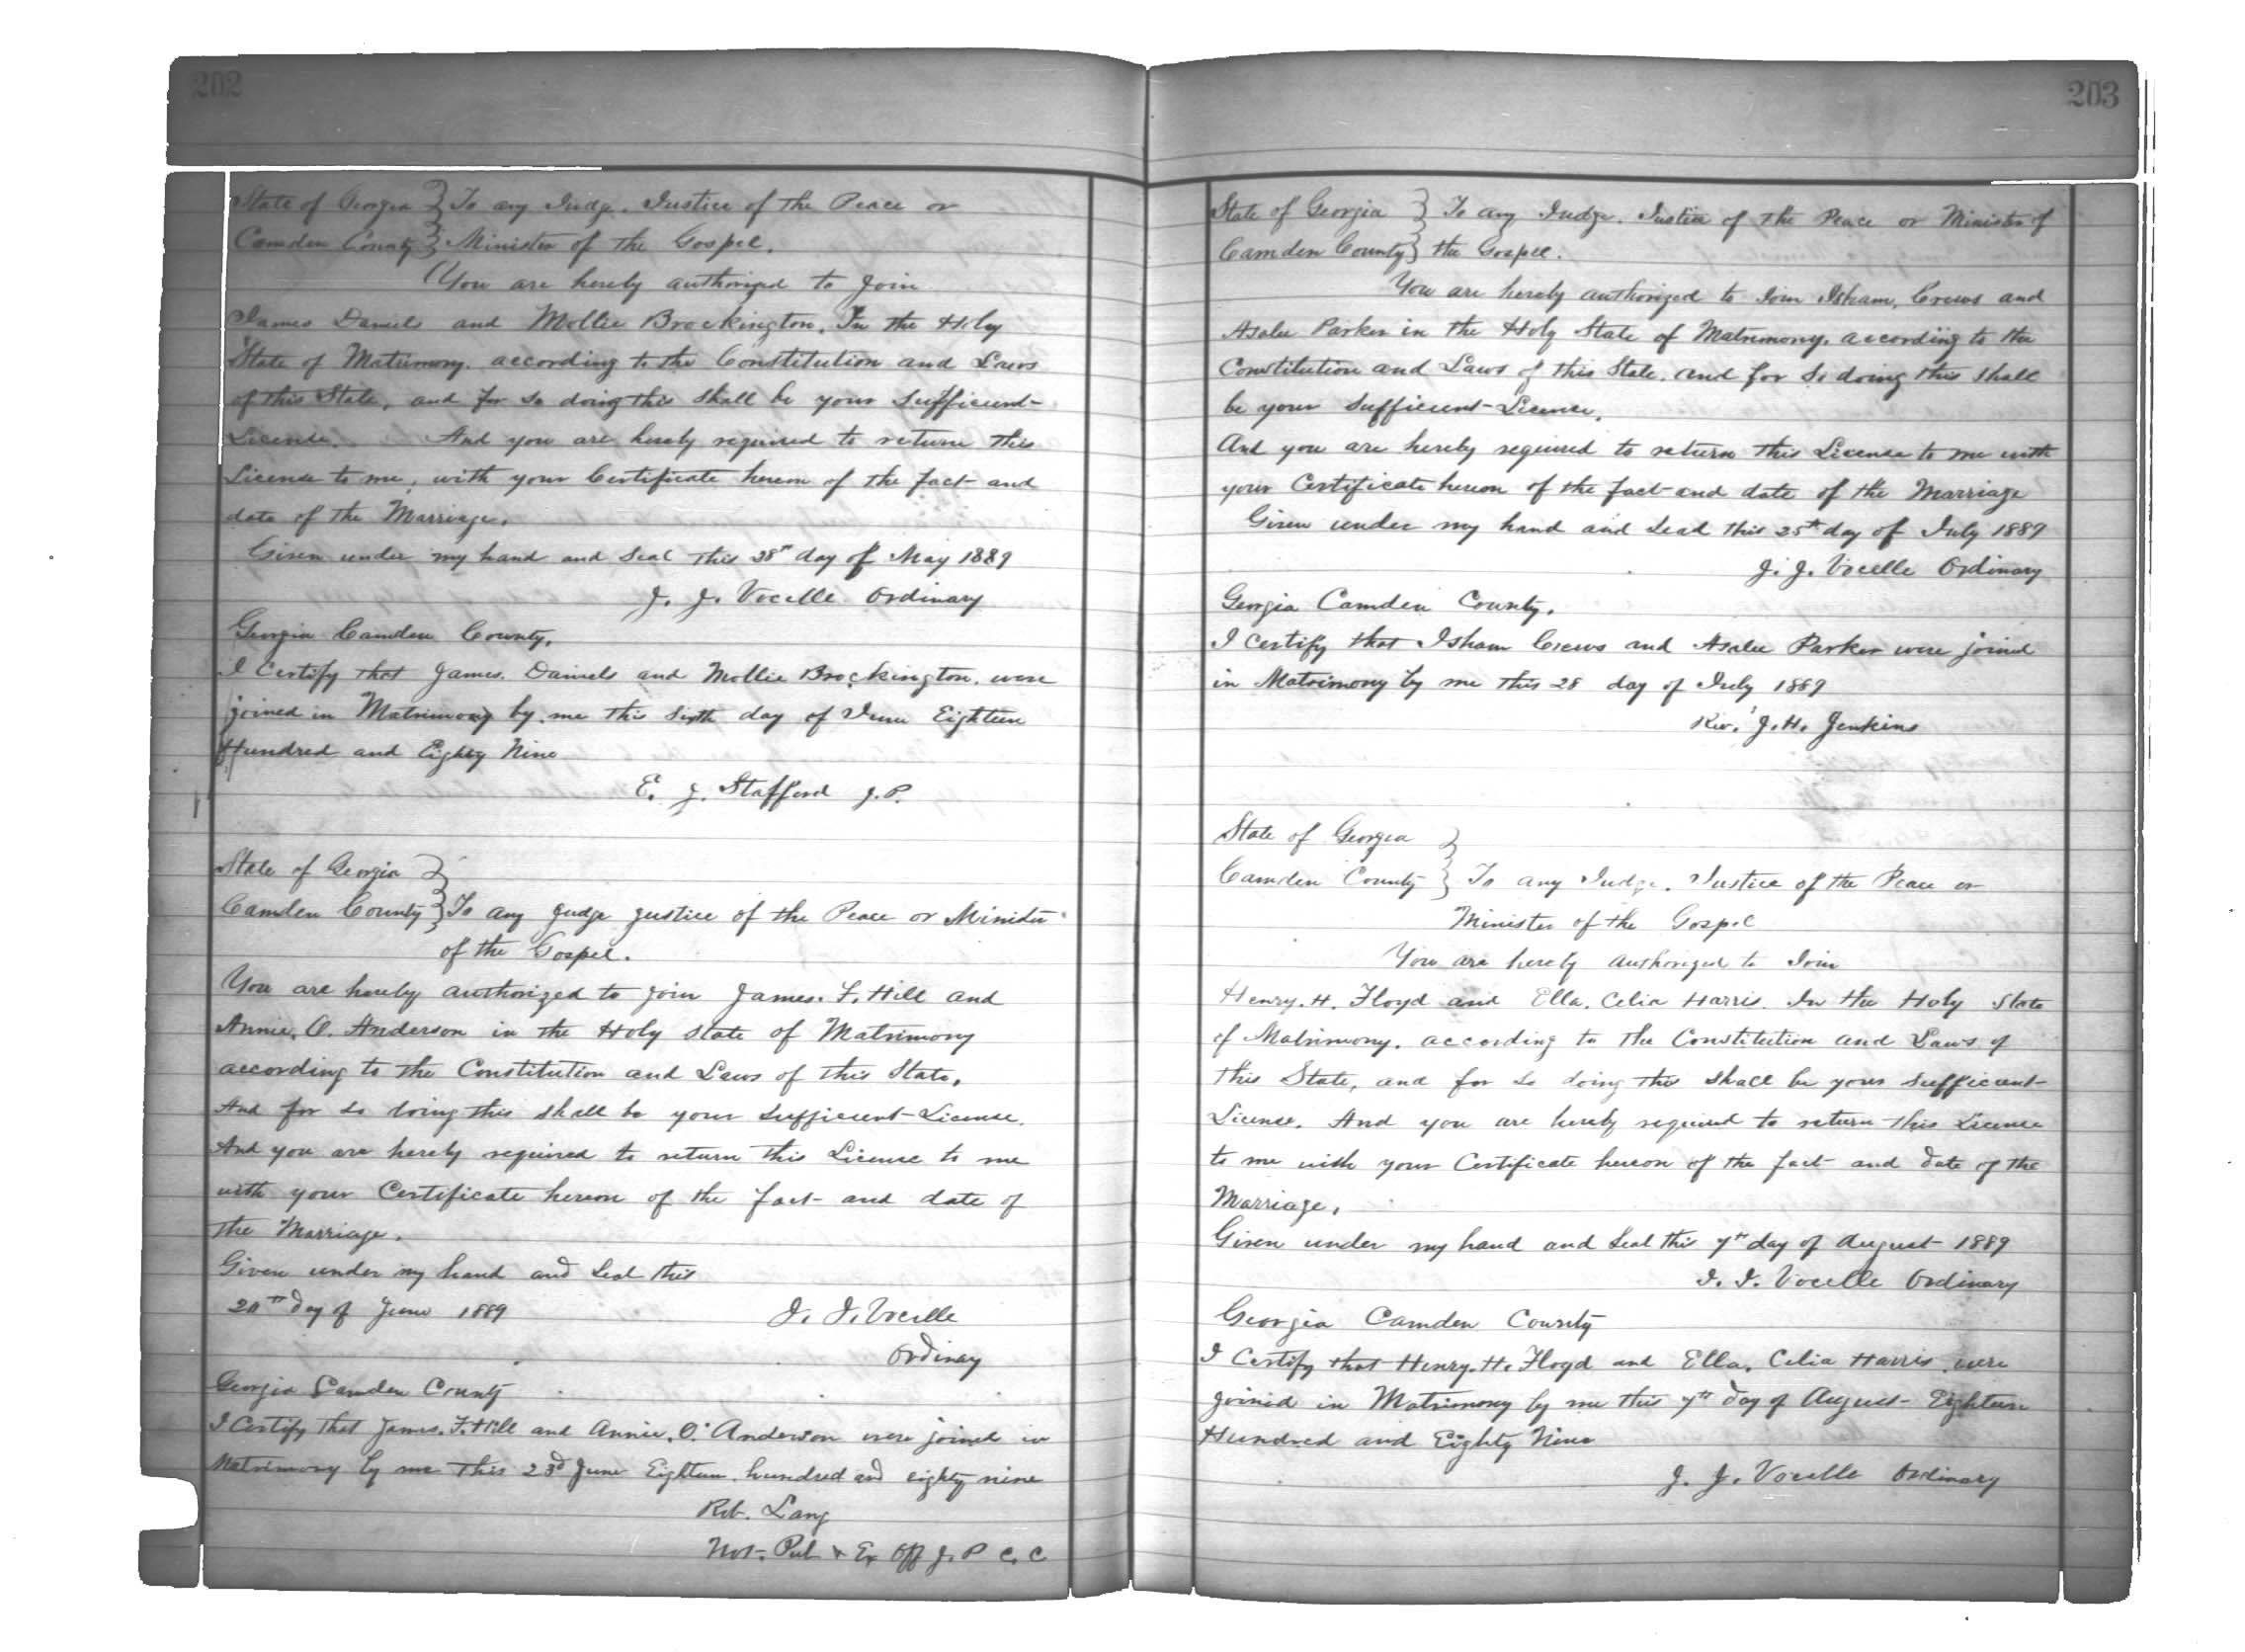 202
State of Georgia } To any Judge. Justice of the Peace or
Camden County } Minister of the Gospel.
You are hereby authorized to join
James Daniels and Mollie Brockington, In the Holy
State of Matrimony. according to the Constitution and Laws
of this State, and for so doing this shall be your sufficient
License. And you are hereby required to return this
License to me, with your Certificate hereon of the fact and
date of the Marriage.
Given under my hand and Seal this 28th day of May 1889
J. J. Vocelle Ordinary
Georgia Camden County,
I Certify that James. Daniels and Mollie Brockington. were
joined in Matrimony by me this Sixth day of June Eighteen
Hundred and Eighty Nine
E. J. Stafford J.P.
State of Georgia }
Camden County } To any Judge Justice of the Peace or Minister
of the Gospel.
You are hereby authorized to join James. F. Hill and
Annie. O. Anderson in the Holy state of Matrimony
according to the Constitution and Laws of this State,
And for so doing this shall be your sufficient License.
And you are hereby required to return this License to me
with your Certificate hereon of the fact and date of
the Marriage.
Given under my hand and Seal this
20th day of June 1889 J. J. Vocelle
Ordinary
Georgia Camden County
I Certify that James. F. Hill and Annie. O. Anderson were joined in
Matrimony by me this 23d June Eighteen hundred and eighty nine
Rob. Lang
Not. Pub & Ex Off J. P C. C
203
State of Georgia } To any Judge. Justice of the Peace or Minister of
Camden County } the Gospel.
You are hereby authorized to Join Isham, Crews and
Asalee Parker in the Holy State of Matrimony. according to the
Constitution and Laws of this State. and for so doing this shall
be your sufficient License.
And you are hereby required to return this License to me with
your Certificate hereon of the fact and date of the Marriage
Given under my hand and Seal this 25th day of July 1889
J. J. Vocelle Ordinary
Georgia Camden County.
I Certify that Isham Crews and Asalee Parker were joined
in Matrimony by me this 28 day of July 1889
Rev. J. H. Jenkins
State of Georgia }
Camden County } To any Judge. Justice of the Peace or
Minister of the Gospel
You are hereby authorized to Join
Henry. H. Floyd and Ella. Celia Harris. In the Holy State
of Matrimony. according to the Constitution and Laws of
this State, and for so doing this shall be your sufficient
License. And you are hereby required to return this License
to me with your Certificate hereon of the fact and date of the
Marriage.
Given under my hand and Seal this 7th day of August 1889
J. J. Vocelle Ordinary
Georgia Camden County
I Certify that Henry. H. Floyd and Ella. Celia Harris were
joined in Matrimony by me this 7th day of August Eighteen
Hundred and Eighty Nine
J. J. Vocelle Ordinary